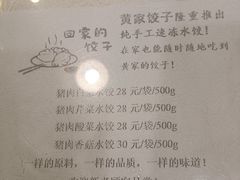 回家的
饺子
黄家饺子隆重推出
纯手工速冻水饺!
在家也能随时随地吃到
黄家的饺子!
猪肉白菜水饺 28 元/袋/500g
猪肉芹菜水饺 28 元/袋/500g
猪肉酸菜水饺 28 元/袋/500g
猪肉香菇水饺 30 元/袋/500g
一样的原料,一样的品质,一样的味道!